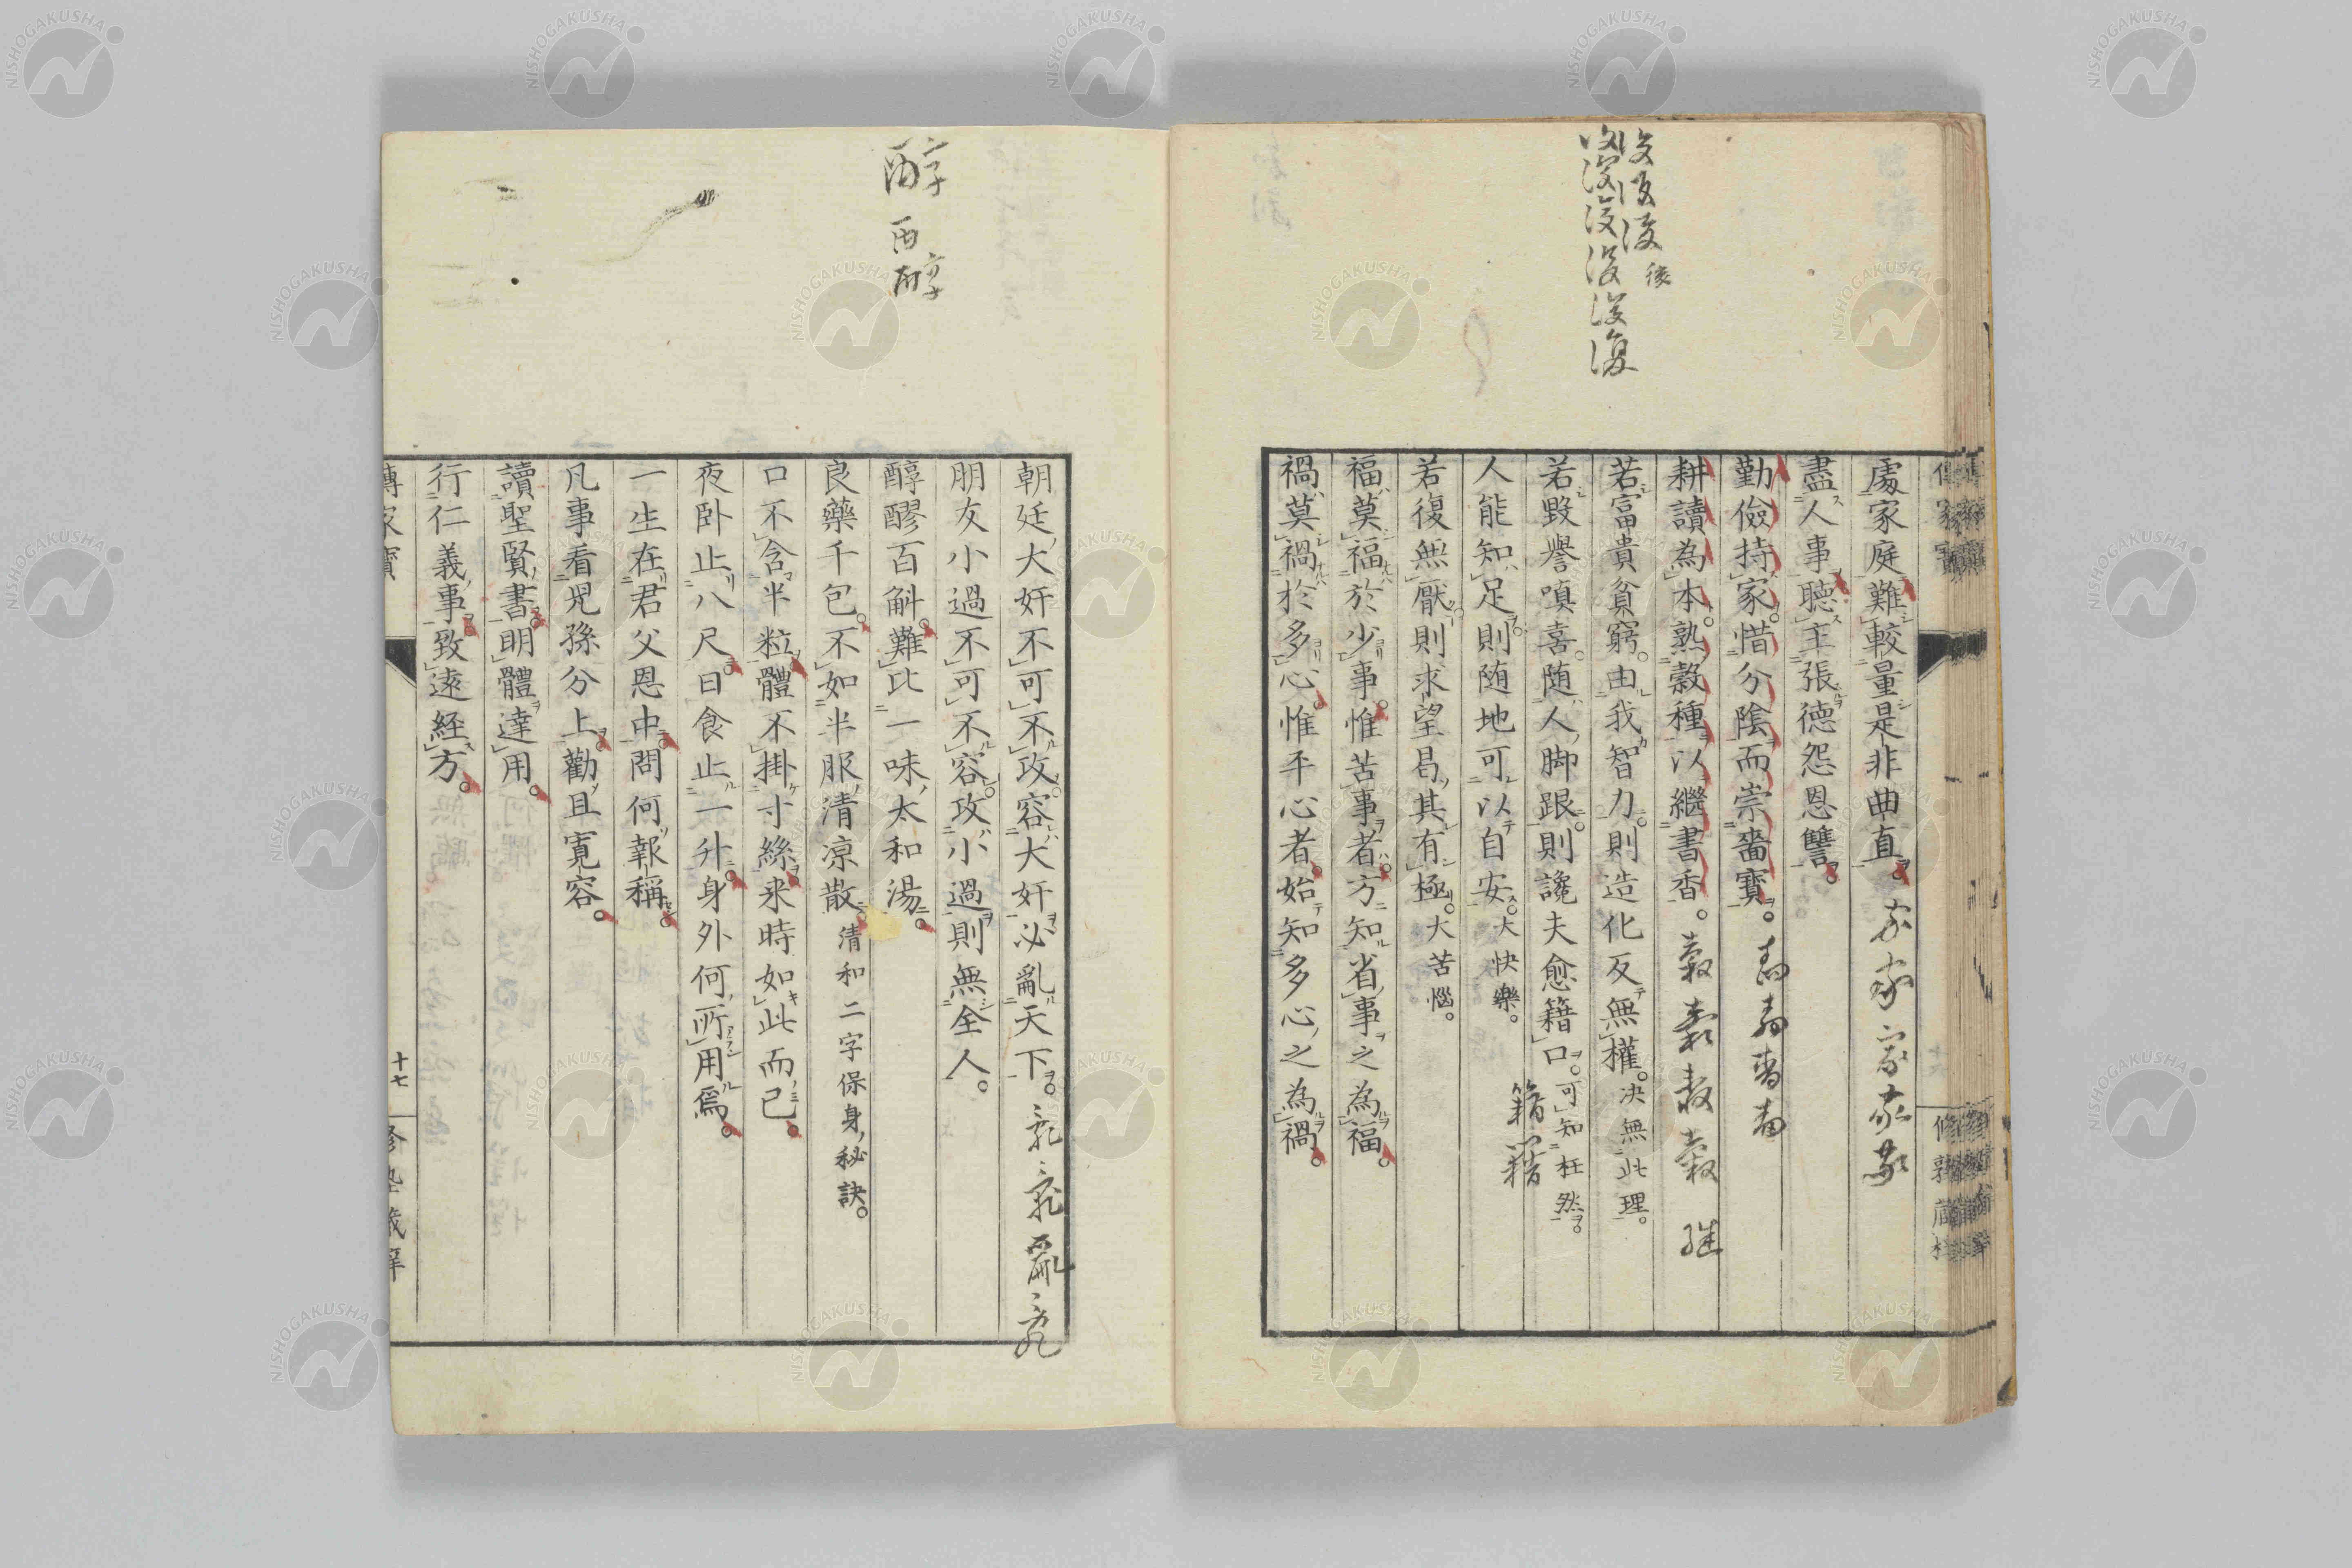 後
復
處家庭難較量是非曲直。
盡人事聽主張德怨恩讐。
勤儉持家。惜分陰而崇嗇寶。
耕讀為本。熟穀種以繼書香。
継
若富貴貧窮。由我智力。則造化反無權。决無此理。
若毀譽嗔喜。随人脚跟。則讒夫愈籍口。可知枉然。
籍籍
人能知足。則随地可以自安。大快樂。
若復無厭。則求望曷其有極。大苦惱。
福莫福於少事。惟苦事者。方知省事之為福。
禍莫禍於多心。惟平心者。始知多心之為禍。
醇
酉
醇
朝廷大奸不可不攻。容大奸必亂天下。
朋友小過不可不容。攻小過則無全人。
醇醪百斛。難比一味太和湯。
良藥千包。不如半服清凉散。清和二字保身秘訣。
口不含半粒。體不掛寸絲。来時如此而已。
夜卧止八尺。日食止一升。身外何所用爲。
一生在君父恩中。問何報稱。
凡事看兒孫分上。勸且寛容。
讀聖賢書。明體達用。
行仁義事。致遠経方。
傳家寳
十七
NISHOGAKUSHA